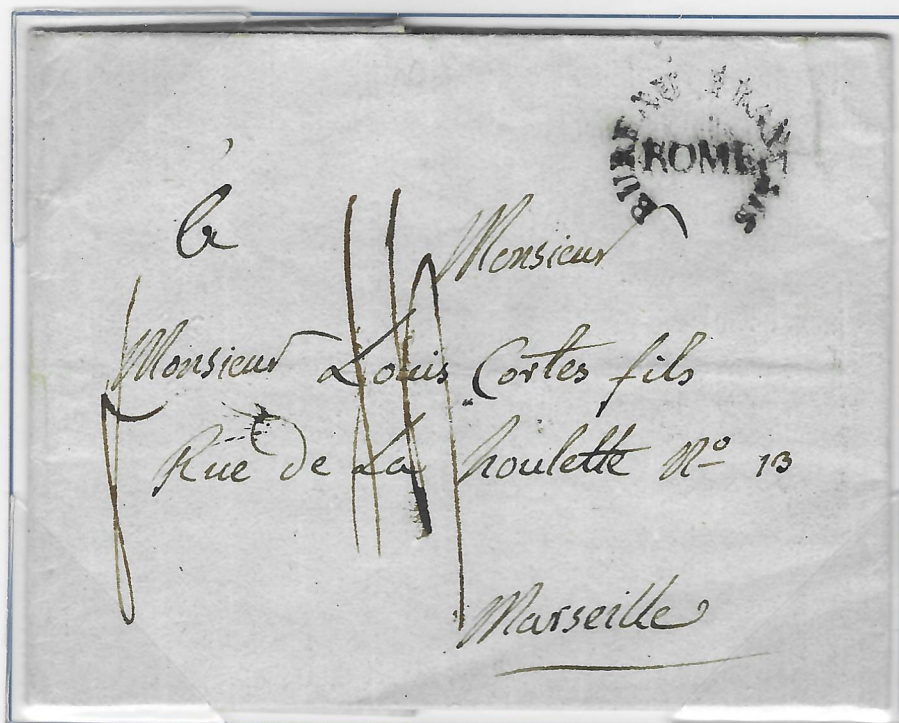 BUREAU FRANÇAIS
ROME
à
Monsieur
Monsieur Louis Cortes fils
Rue de La houlette No 13
Marseille